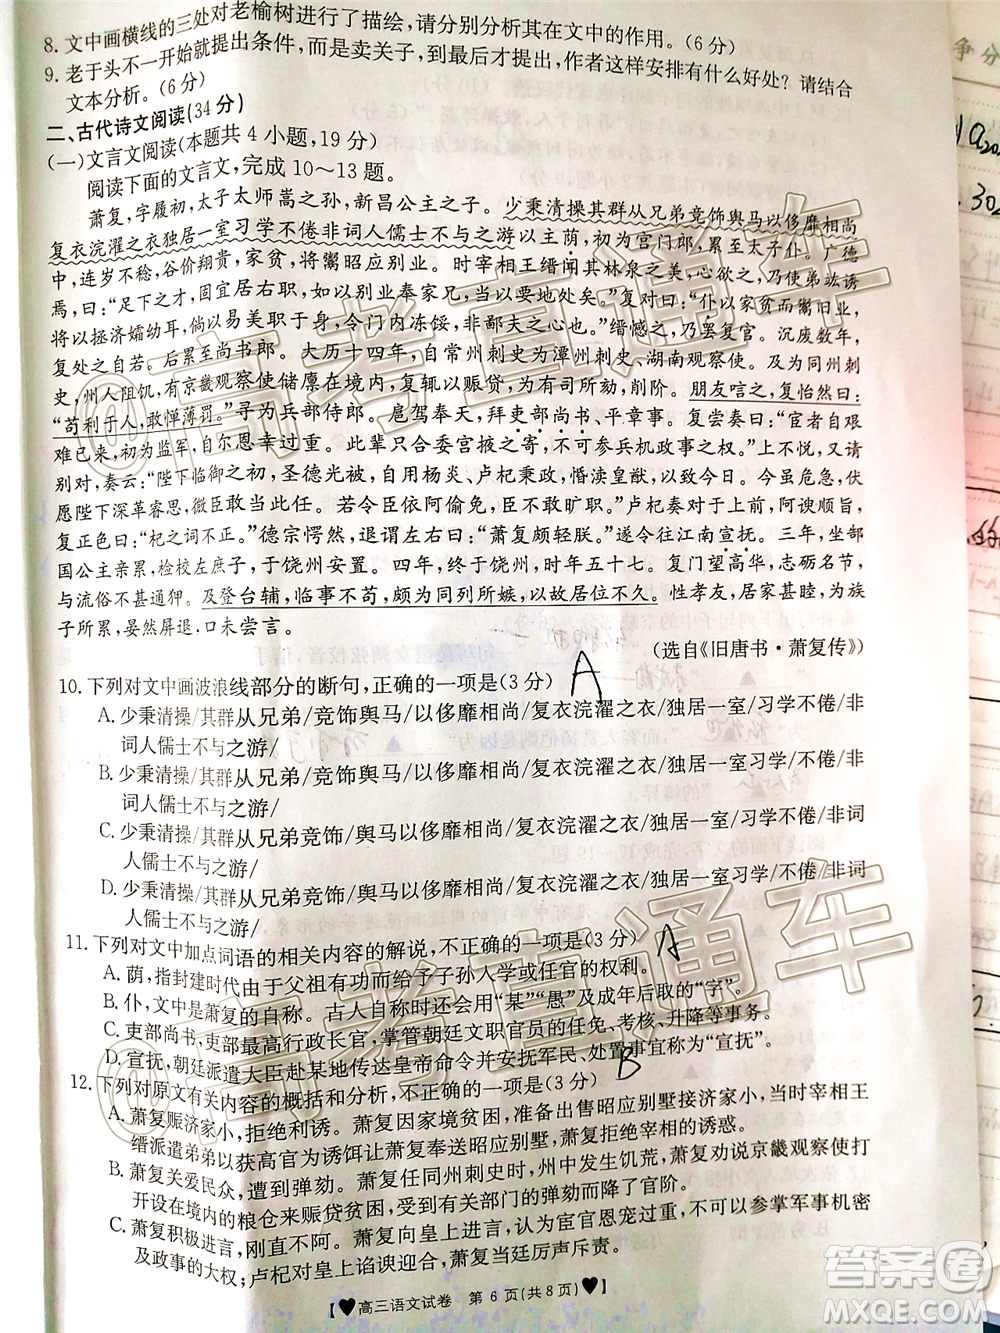 8. 文中画横线的三处对老榆树进行了描绘,请分别分析其在文中的作用。(6分)
9. 老于头不一开始就提出条件,而是卖关子,到最后才提出,作者这样安排有什么好处?请结合
文本分析。(6分)
二、古代诗文阅读(34分)
(一)文言文阅读(本题共4小题,19分)
阅读下面的文言文,完成10～13题。
萧复,字履初,太子太师嵩之孙,新昌公主之子。少秉清操其群从兄弟竞饰舆马以侈靡相尚
复衣浣濯之衣独居一室习学不倦非词人儒士不与之游以主荫,初为宫门郎,累至太子仆。广德
中,连岁不稔,谷价翔贵,家贫,将鬻昭应别业。时宰相王缙闻其林泉之美,心欲之,乃使弟纮诱
焉,曰:“足下之才,固宜居右职,如以别业奉家兄,当以要地处矣。”复对曰:“仆以家贫而鬻旧业,
将以拯济孀幼耳,倘以易美职于身,令门内冻馁,非鄙夫之心也。”缙憾之,乃罢复官。沉废数年,
复处之自若。后累至尚书郎。大历十四年,自常州刺史为潭州刺史、湖南观察使。及为同州刺
史,州人阻饥,有京畿观察使储廪在境内,复辄以赈贷,为有司所劾,削阶。朋友唁之,复怡然曰:
“苟利于人,敢惮薄罚。”寻为兵部侍郎。扈驾奉天,拜吏部尚书、平章事。复尝奏曰:“宦者自艰
难已来,初为监军,自尔恩幸过重。此辈只合委宫掖之寄,不可参兵机政事之权。”上不悦,又请
别对,奏云:“陛下临御之初,圣德光被,自用杨炎、卢杞秉政,惛渎皇猷,以致今日。今虽危急,伏
愿陛下深革睿思,微臣敢当此任。若令臣依阿偷免,臣不敢旷职。”卢杞奏对于上前,阿谀顺旨,
复正色曰:“杞之词不正。”德宗愕然,退谓左右曰:“萧复颇轻朕。”遂令往江南宣抚。三年,坐郜
国公主亲累,检校左庶子,于饶州安置。四年,终于饶州,时年五十七。复门望高华,志砺名节,
与流俗不甚通狎。及登台辅,临事不苟,颇为同列所嫉,以故居位不久。性孝友,居家甚睦,为族
子所累,晏然屏退,口未尝言。
(选自《旧唐书·萧复传》)
10. 下列对文中画波浪线部分的断句,正确的一项是(3分) A
A. 少秉清操/其群从兄弟/竞饰舆马/以侈靡相尚/复衣浣濯之衣/独居一室/习学不倦/非
词人儒士不与之游/
B. 少秉清操/其群从兄弟/竞饰舆马/以侈靡相尚/复衣浣濯之衣/独居一室习学/不倦/非
词人儒士不与之游/
C. 少秉清操/其群从兄弟竞饰/舆马以侈靡相尚/复衣浣濯之衣/独居一室/习学不倦/非词
人儒士不与之游/
D. 少秉清操/其群从兄弟竞饰/舆马以侈靡相尚/复衣浣濯之衣/独居一室习学/不倦/非词
人儒士不与之游/
11. 下列对文中加点词语的相关内容的解说,不正确的一项是(3分) A
A. 荫,指封建时代由于父祖有功而给予子孙入学或任官的权利。
B. 仆,文中是萧复的自称。古人自称时还会用“某”“愚”及成年后取的“字”。
C. 吏部尚书,吏部最高行政长官,掌管朝廷文职官员的任免、考核、升降等事务。
D. 宣抚,朝廷派遣大臣赴某地传达皇帝命令并安抚军民、处置事宜称为“宣抚”。
12. 下列对原文有关内容的概括和分析,不正确的一项是(3分) B
A. 萧复赈济家小,拒绝利诱。萧复因家境贫困,准备出售昭应别墅接济家小,宰相王
缙派遣弟弟以获高官为诱饵让萧复奉送昭应别墅,萧复拒绝宰相的诱惑。
B. 萧复关爱民众,遭到弹劾。萧复任同州刺史时,州中发生饥荒,萧复劝说京畿观察使打
开设在境内的粮仓来赈贷贫困,萧复因有关部门的弹劾而降了官阶。
C. 萧复积极进言,刚直不阿。萧复向皇上进言,宦官恩宠过重,不可以参掌军事机密
及政事的大权;卢杞向皇上谄谀迎合,萧复当廷厉声斥责。
【♥高三语文试卷 第6页(共8页)♥】
@高考直通车
高考直通车
答案圈
MXQE.COM